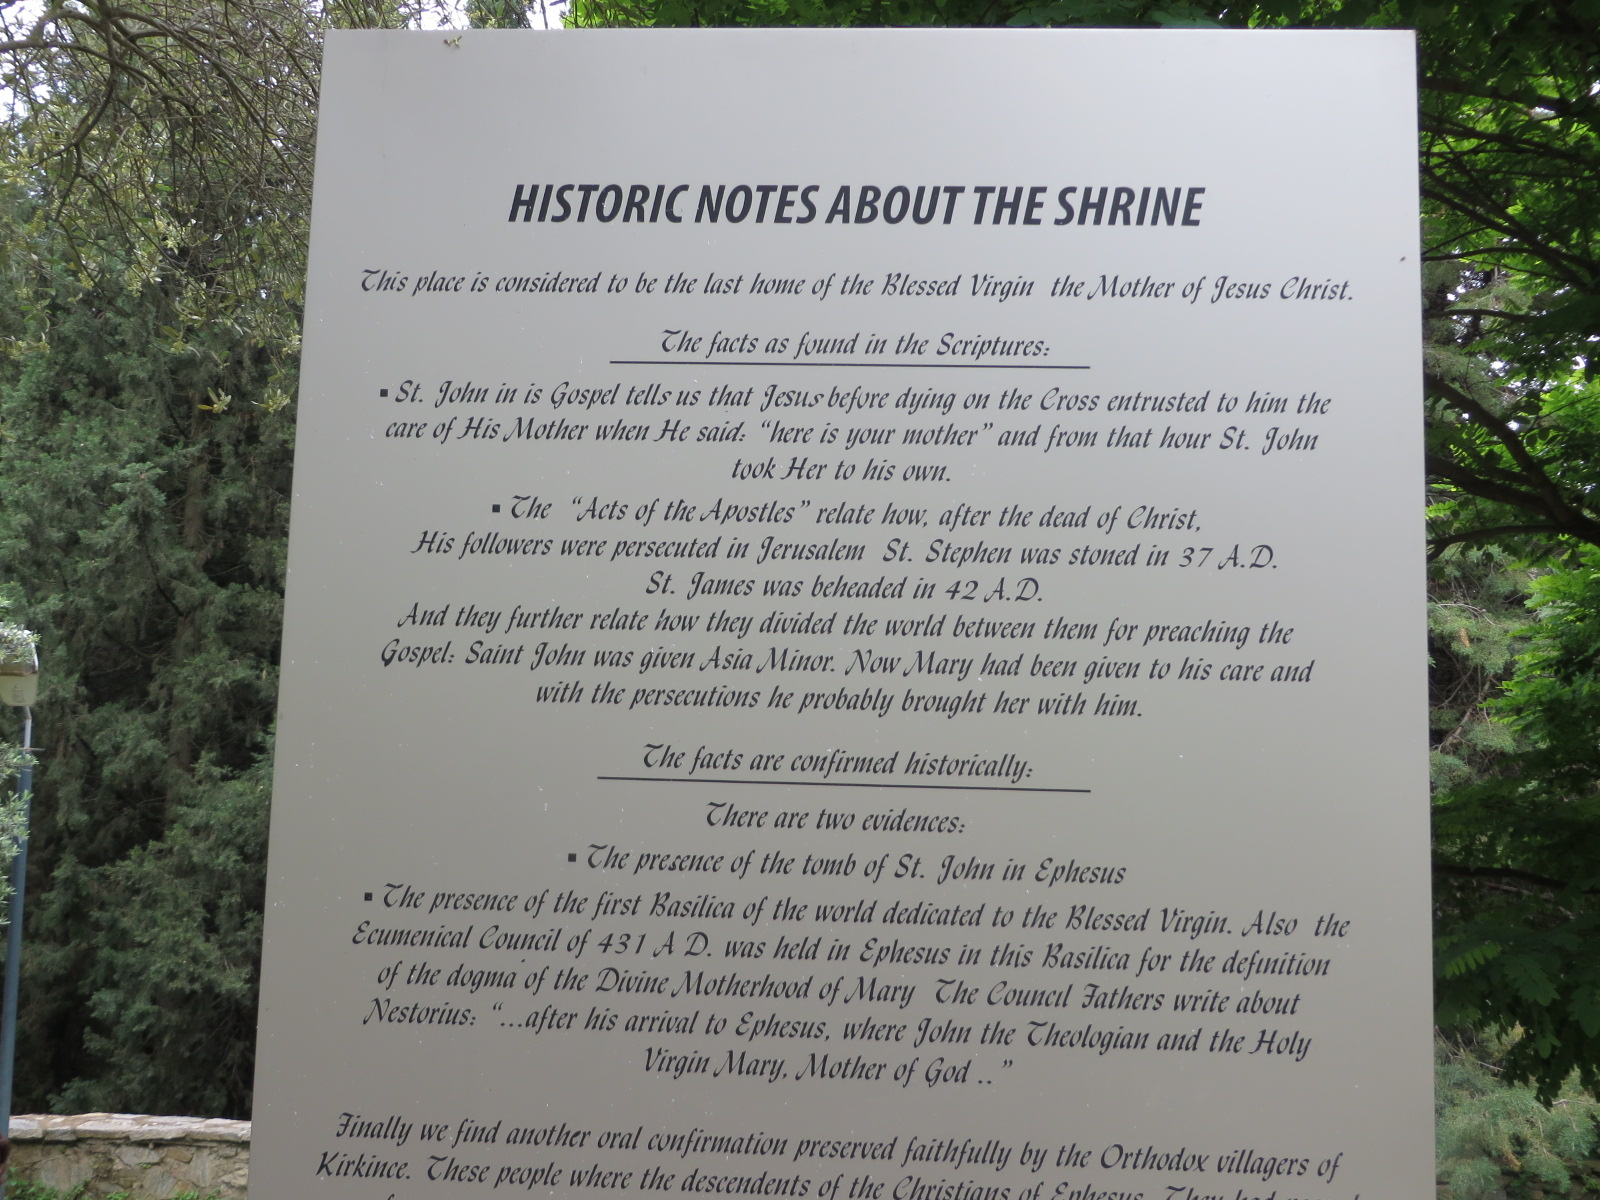 HISTORIC NOTES ABOUT THE SHRINE
This place is considered to be the last home of the Blessed Virgin the Mother of Jesus Christ.
The facts as found in the Scriptures:
▪ St. John in is Gospel tells us that Jesus before dying on the Cross entrusted to him the
care of His Mother when He said: “here is your mother” and from that hour St. John
took Her to his own.
▪ The “Acts of the Apostles” relate how, after the dead of Christ,
His followers were persecuted in Jerusalem St. Stephen was stoned in 37 A.D.
St. James was beheaded in 42 A.D.
And they further relate how they divided the world between them for preaching the
Gospel: Saint John was given Asia Minor. Now Mary had been given to his care and
with the persecutions he probably brought her with him.
The facts are confirmed historically:
There are two evidences:
▪ The presence of the tomb of St. John in Ephesus
▪ The presence of the first Basilica of the world dedicated to the Blessed Virgin. Also the
Ecumenical Council of 431 A D. was held in Ephesus in this Basilica for the definition
of the dogma of the Divine Motherhood of Mary The Council Fathers write about
Nestorius: “...after his arrival to Ephesus, where John the Theologian and the Holy
Virgin Mary, Mother of God ..”
Finally we find another oral confirmation preserved faithfully by the Orthodox villagers of
Kirkince. These people where the descendents of the Christians of Ephesus. They had